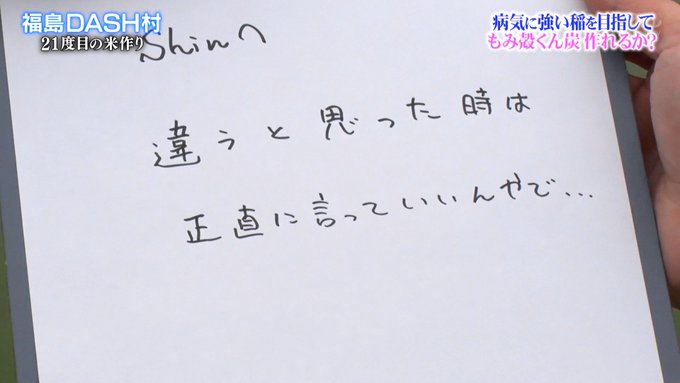 福島DASH村
21度目の米作り
病気に強い稲を目指して
もみ殻くん炭 作れるか?
Shinへ
違うと思った時は
正直に言っていいんやで…